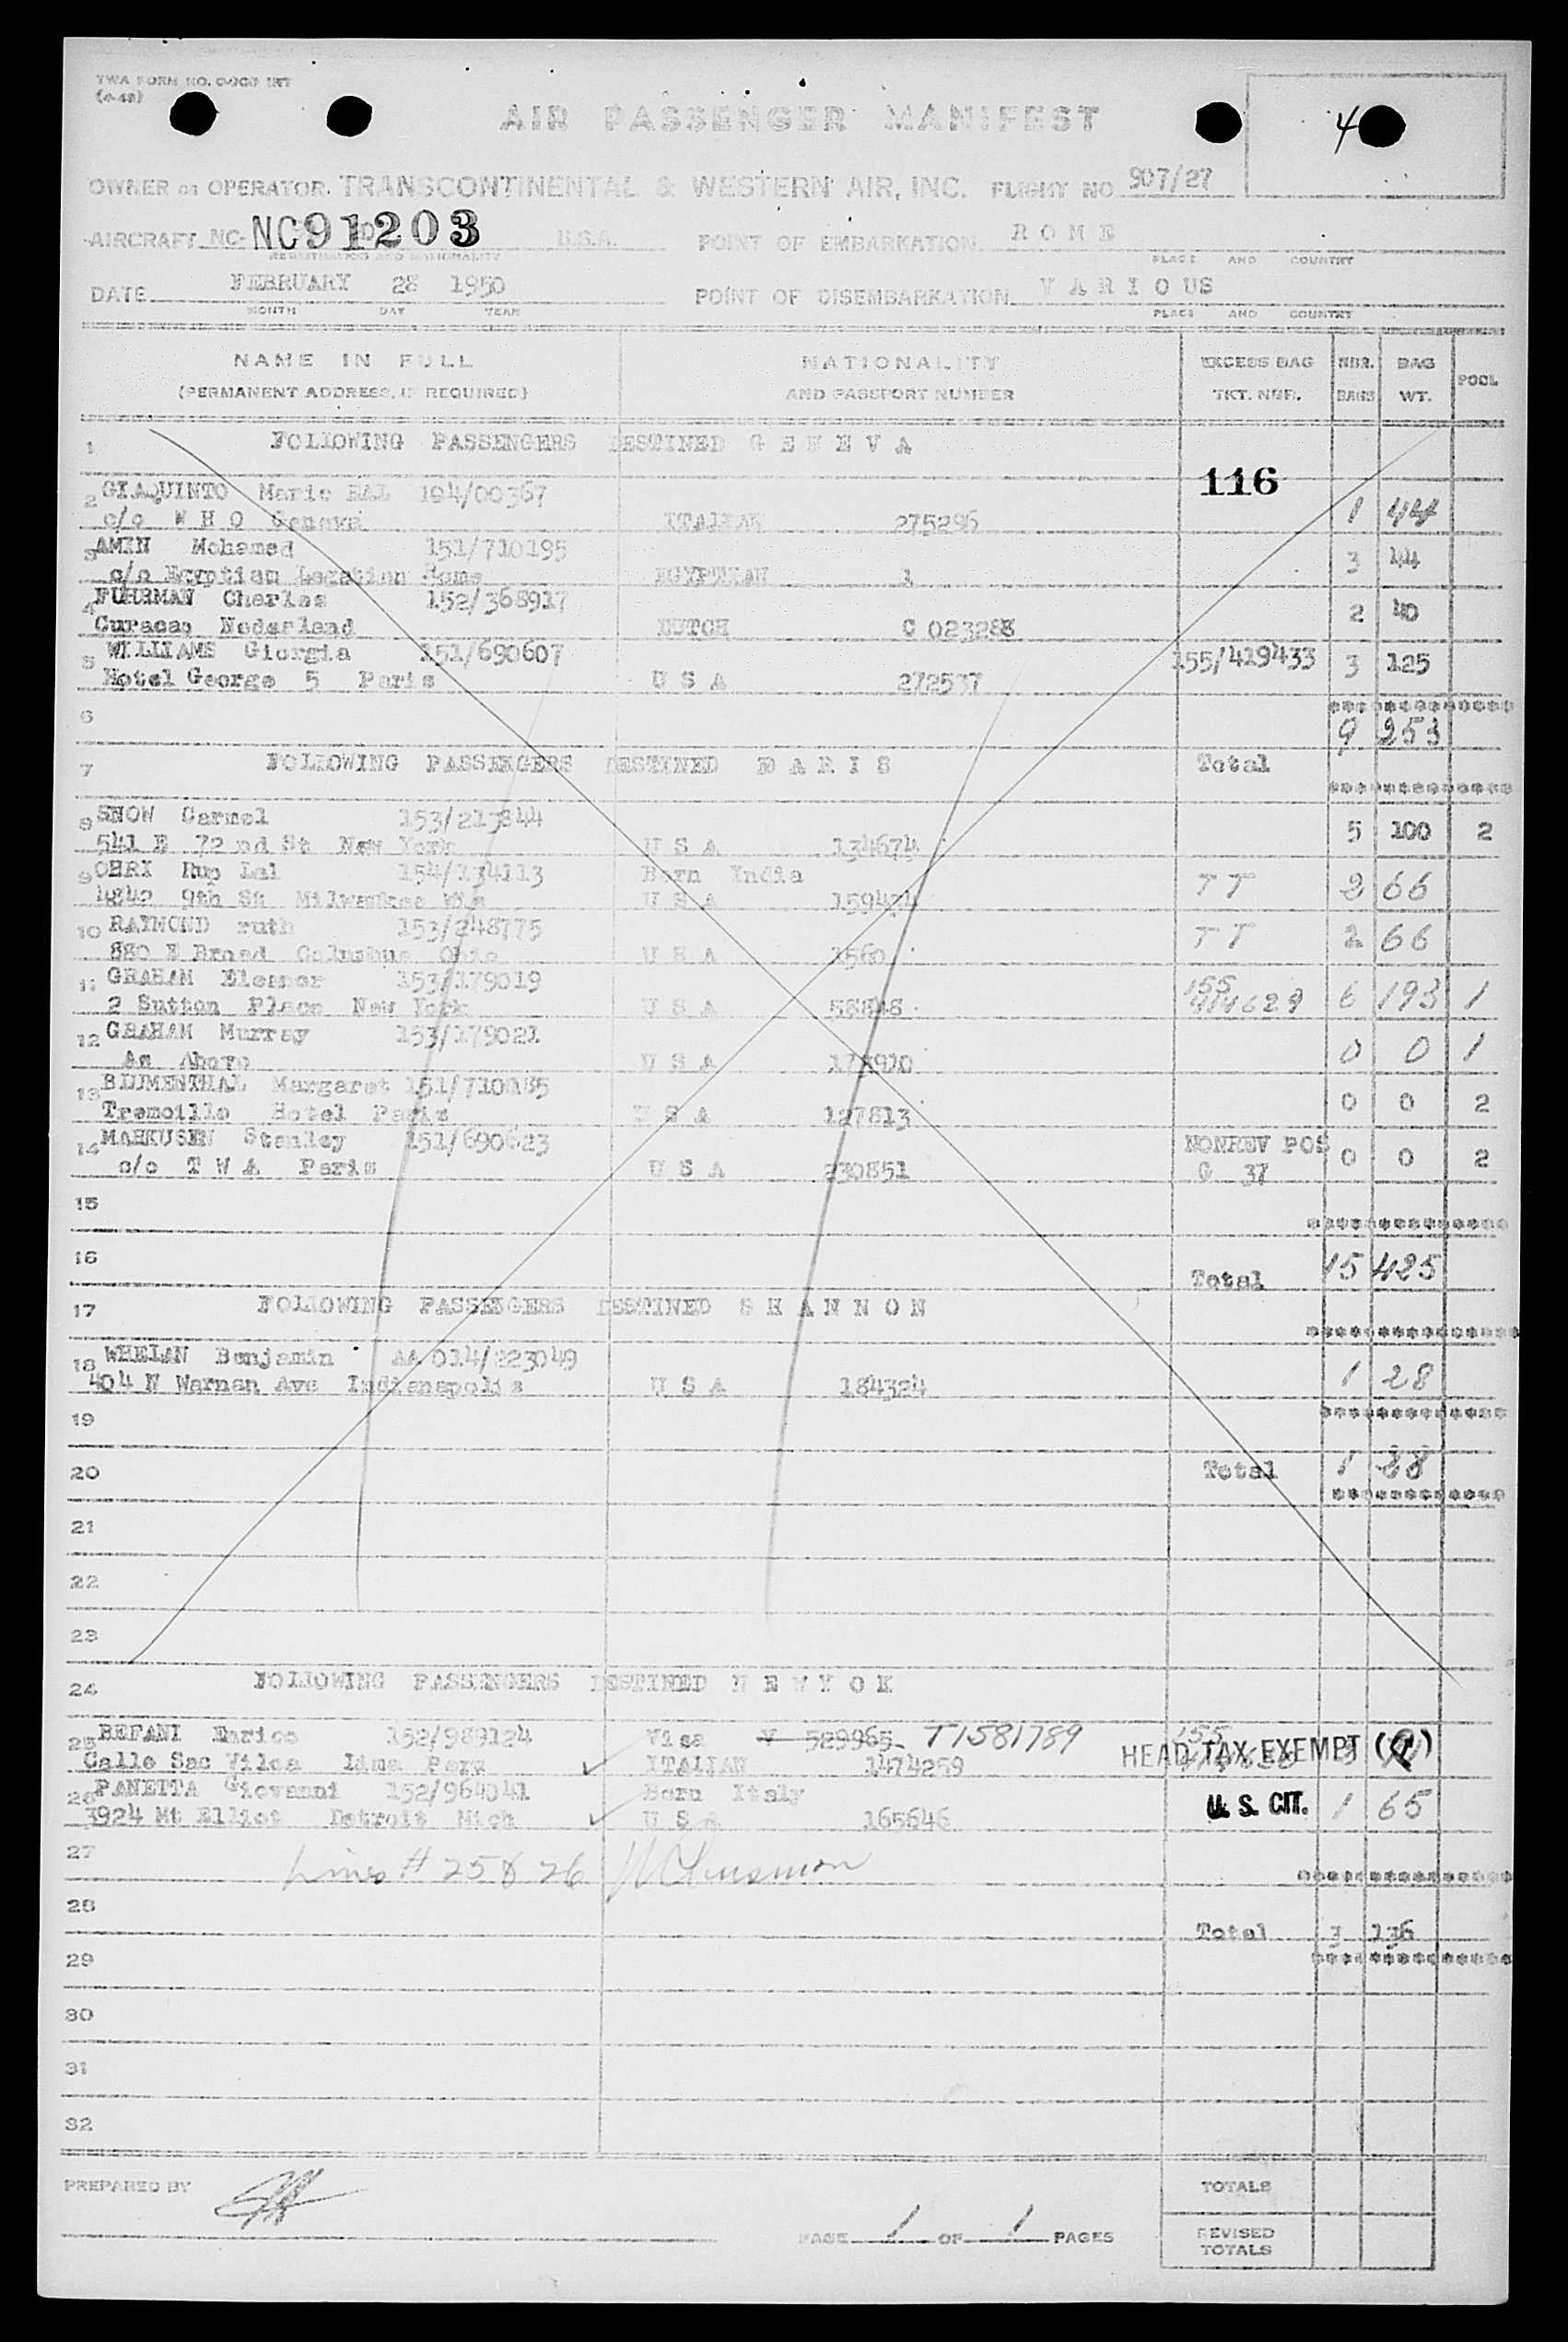 TWA FORM NO.
AIR PASSENGER MANIFEST
4
OWNER OR OPERATOR. TRANSCONTINENTAL & WESTERN AIR, INC. FLIGHT NO. 907/27
AIRCRAFT NO. NC91203 U.S.A. POINT OF EMBARKATION R O M E
REGISTRATION AND NATIONALITY PLACE AND COUNTRY
DATE FEBRUARY 28 1950 POINT OF DISEMBARKATION V A R I O U S
MONTH DAY YEAR PLACE AND COUNTRY
NAME IN FULL NATIONALITY EXCESS BAG NBR. BAG POOL
(PERMANENT ADDRESS, IF REQUIRED) AND PASSPORT NUMBER TKT. NBR. BAGS WT.
1 FOLLOWING PASSENGERS DESTINED G E N E V A
116
2 GIAQUINTO Marie 194/00367
c/o W H O Geneva ITALIAN 275296 1 44
3 AMIN Mohamed 151/710195
c/o Egyptian Legation Rome EGYPTIAN 1 3 44
4 FUHRMAN Charles 152/368917
Curacao Nederland DUTCH C 023288 2 40
5 WILLIAMS Giorgia 151/690607 155/419433 3 125
Hotel George 5 Paris U S A 272537
6 9 253
7 FOLLOWING PASSENGERS DESTINED P A R I S Total
8 SNOW Carmel 153/213844 5 100 2
541 E 72 nd St New York U S A 134674
9 OHRI Rup Lal 154/134113 Born India T T 2 66
4842 9th St Milwaukee Wis U S A 159434
10 RAYMOND ruth 153/248775 T T 2 66
880 E Broad Columbus Ohio U S A 1560
11 GRAHAM Eleanor 153/179019 155 6 193 1
2 Sutton Place New York U S A 58848
12 GRAHAM Murray 153/179021 0 0 1
As Above U S A
13 BLUMENTHAL Margaret 151/710185 0 0 2
Tremoille Hotel Paris U S A 127813
14 MARKUSEN Stanley 151/690623 NONREV POS 0 0 2
c/o T W A Paris U S A 230851 G 37
15
16 Total 15 425
17 FOLLOWING PASSENGERS DESTINED S H A N N O N
18 WHELAN Benjamin AA 014/223049 1 28
404 N Warman Ave Indianapolis U S A 184324
19
20 Total 1 28
21
22
23
24 FOLLOWING PASSENGERS DESTINED N E W Y O K
25 BEFANI Enrico 152/989124 Visa V 529965 T1581789 155
Calle Sac Vilca Lima Peru ITALIAN 1474259 HEAD TAX EXEMPT
26 PANETTA Giovanni 152/964041 Born Italy U. S. CIT. 1 65
3924 Mt Elliot Detroit Mich U S A 165646
27 Lines # 25 & 26
28 Total 3 136
29
30
31
32
PREPARED BY TOTALS
PAGE 1 OF 1 PAGES REVISED
TOTALS